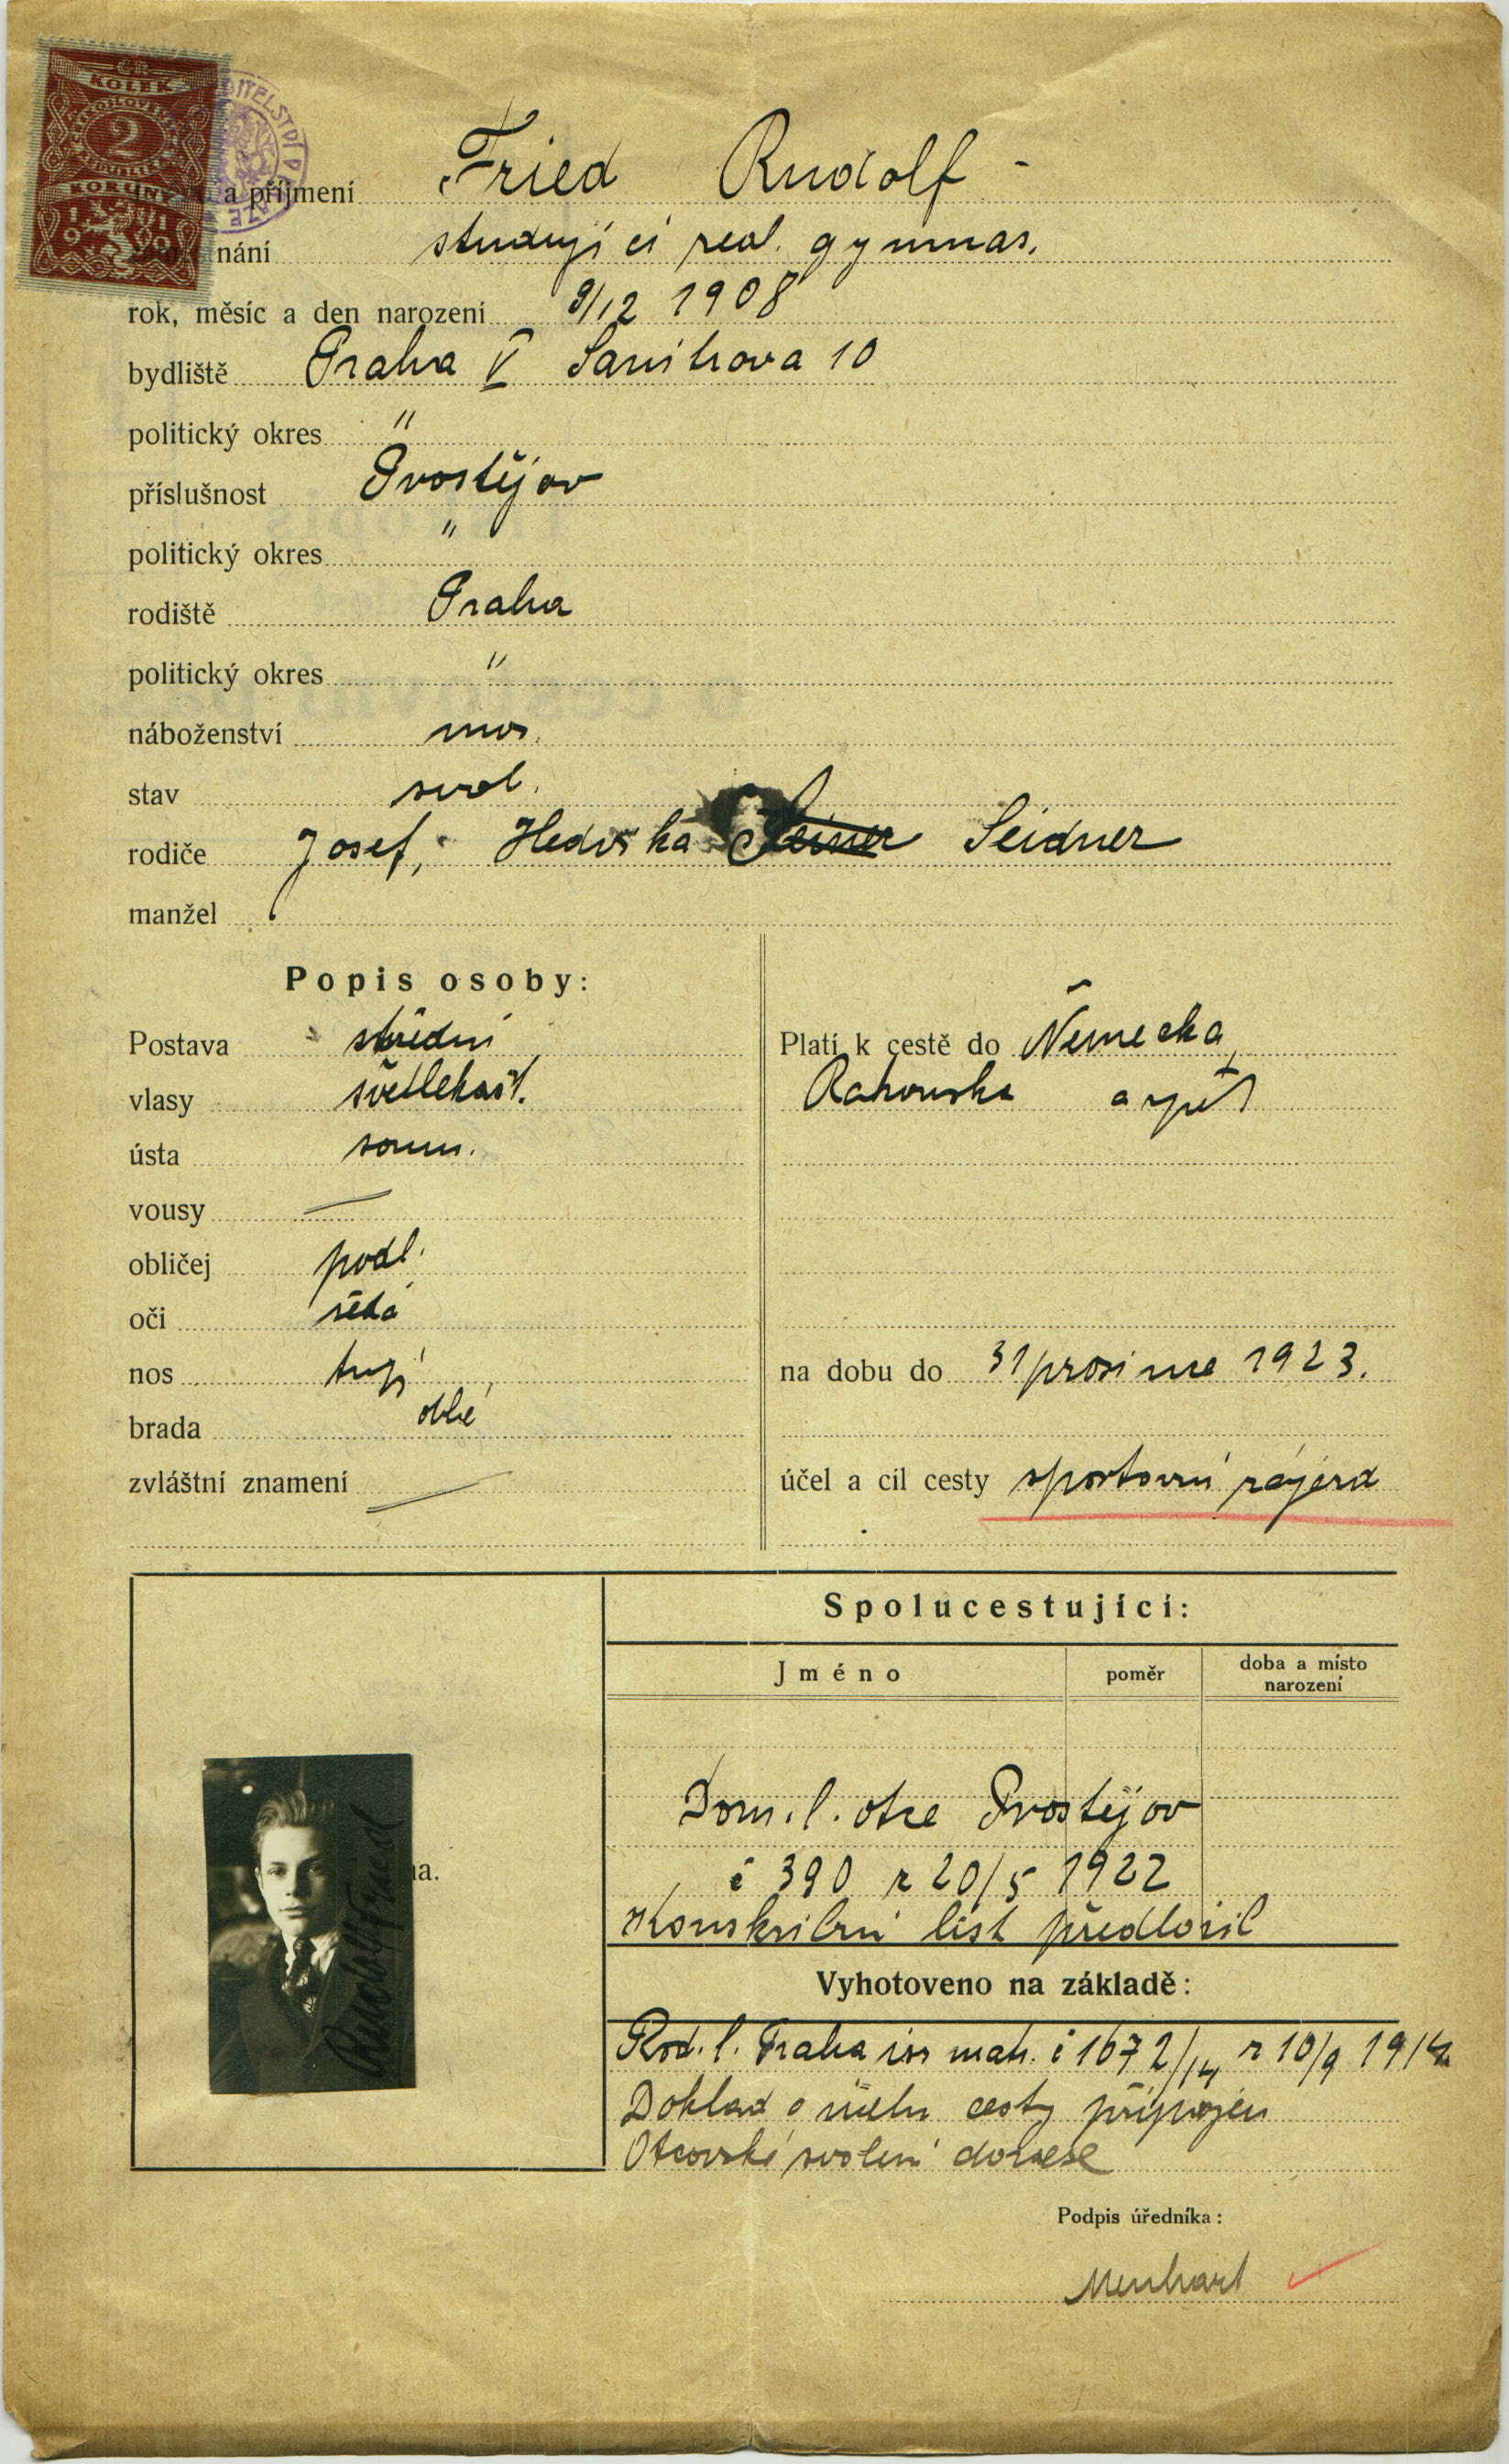 KOLEK
2
KORUNY
a příjmení Fried Rudolf
nání studující real. gymnas.
rok, měsíc a den narození 9/12 1908
bydliště Praha V Sanitrova 10
politický okres "
příslušnost Prostějov
politický okres "
rodiště Praha
politický okres "
náboženství mos.
stav svob.
rodiče Josef, Hedvika Seidner
manžel
Popis osoby:
Postava střední
vlasy světlekašt.
ústa soum.
vousy —
obličej podl.
oči šedá
nos tupý
brada oblé
zvláštní znamení —
Platí k cestě do Německa,
Rakouska a zpět
na dobu do 31 prosince 1923.
účel a cíl cesty sportovní zájezd
Spolucestující:
Jméno poměr doba a místo narození
Dom. l. otce Prostějov
č 390 z 20/5 1922
Konskribční list předložil
Vyhotoveno na základě:
Rod. l. Praha isr matr. č 1672/14 z 10/9 1914
Doklad o účelu cesty připojen
Otcovské svolení donese
Podpis úředníka:
Menhart
na.
Rudolf Fried